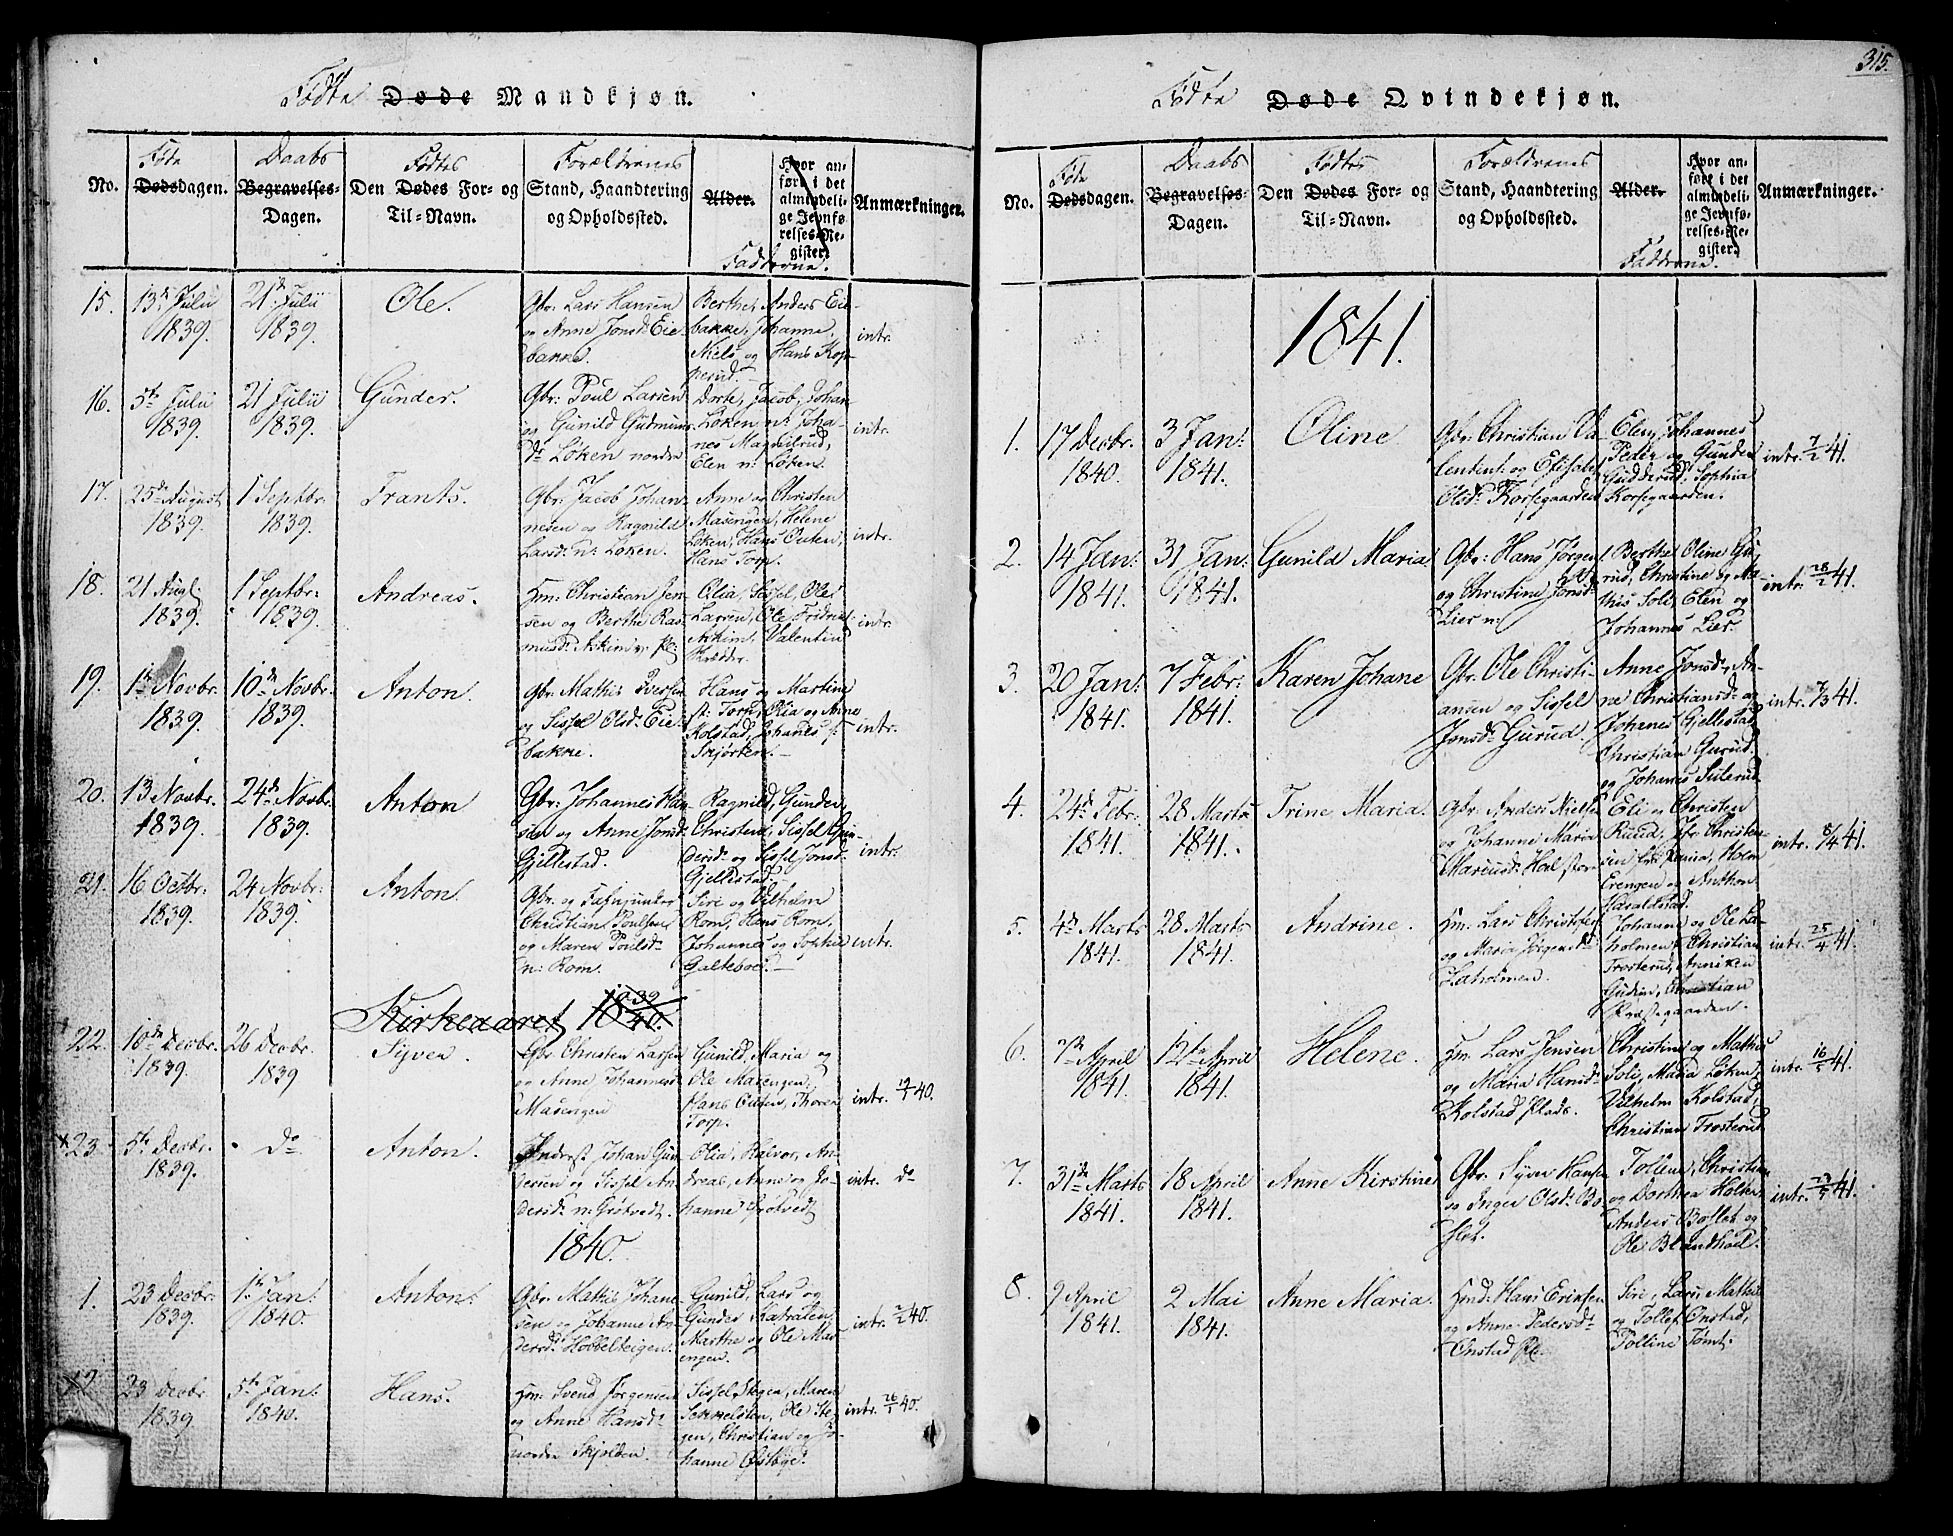 Fødte Døde Mandkjøn.
No.
Føde
Dødsdagen.
Daabs
Begravelses-
Dagen.
Fødtes
Den Dødes For- og
Til-Navn.
Forældrenes
Stand, Haandtering
og Opholdssted.
Alder.
Hvor an-
ført i det
almindeli-
ge Jevnfø-
relses-Re-
gister.
Fadderne.
Anmærkninger.
15.
13de Julii
1839.
21de Julii
1839.
Ole.
Gbr. Lars Hansen
og Anne Jonsd: Eie-
bakke.
Berthe, Anders Eie-
bakke, Johanne,
Niels og Hans Kop-
perud.
intr.
16.
5te Julii
1839.
21 Julii
1839.
Gunder.
Gbr: Poul Larsen
og Gunild Gudmuns-
dr Løken nordre
Dorte, Jacob, Johan-
Løken n: Joha-
nes Magnilrud,
Elen n: Løken.
intr.
17.
25de August
1839.
1 Septbr.
1839.
Frants.
Gbr. Jacob Johan-
nesen og Ragnild
Larsd: n: Løken.
Anne og Christen
Masengen, Helene
Løken, Hans Outen,
Hans Torp.
intr.
18.
21 Aug:
1839.
1 Septbr:
1839.
Andreas.
Hm: Christian Jen-
sen og Berthe Ras-
musd: Askim v: Pl:
Olia, Sissel, Ole
Askim, Valentin
intr.
19.
1te Novbr.
1839.
10de Novbr.
1839.
Anton.
Gbr: Mathis Iversen
og Sissel Olsd: Eie-
bakke.
Hans og Martine
st: Torp, Olia og Anne
Kolstad, Johanes s:
Skjørken.
intr.
20.
13 Novbr.
1839.
24de Novbr.
1839.
Anton
Gbr: Johannes Han-
sen og Anne Jonsd:
Gjellestad.
Ragnild, Gunder,
Christend, Sissel Gun-
dersd: og Sissel Jonsd:
Gjellestad.
intr.
21.
16 Octbr:
1839.
24 Novbr:
1839.
Anton.
Christians Poulsen
og Maren Poulsd:
n: Rom.
Siri og Vilhelm
Rom, Hans Rom,
Johannes og Sophie
Galteboe.
intr.
Kirkeaaret 1839
1840.
22.
10de Decbr.
1839.
26 Decbr.
1839
Syver.
Gbr. Christen Larsen
og Anne Johannesd:
Masengen
Gunild, Maria og
Ole Masengen,
Hans Outen, Thoren
Torp.
intr. 40.
23.
5te Decbr.
1839.
do
Anton.
Inderst Johan Gun-
dersen og Sissel An-
dersd: n: Grøtvedt.
Olia, Halvor, An-
dreas, Anne og Jo-
hanne Grøtvedt
intr. do
1840.
1.
23 Decbr.
1839.
1te Jan:
1840.
Anton.
Gbr. Mathis Johane-
sen og Johanne An-
dersd: Hobbelteigen.
Gunild, Lars og
Gunder Katralen,
Marthe og Ole Mas-
engen.
intr. 2/2 40.
2.
23 Decbr
1839
5te Jan:
1840.
Hans.
Hm: Svend Jørgensen
og Anne Hansd:
nordre Skjolden.
Sissel Stegen, Maren
Sekkelsten, Ole Ste-
gen, Christian og Jo-
hanne Østbye.
intr. 26/1 40.
315.
Fødte Døde Qvindekjøn.
No.
Føde
Dødsdagen.
Daabs
Begravelses-
Dagen.
Fødtes
Den Dødes For- og
Til-Navn.
Forældrenes
Stand, Haandtering
og Opholdssted.
Alder.
Hvor an-
ført i det
almindeli-
ge Jevnfø-
relses-Re-
gister.
Fadderne.
Anmærkninger.
1841.
1.
17 Decbr.
1840.
3 Jan:
1841.
Oline
Gbr. Christian Va-
lentent: og Elisabet
Olsd: Korsegaarden
Elen, Johannes
Peder og Gunder
Gudderud, Sophia
Korsegaarden.
intr. 7/2 41.
2.
14 Jan:
1841.
31 Jan:
1841.
Gunild Maria
Gbr: Hans Jørgens
og Christine Jonsd:
Lier n:
Berthe Oline Gu-
rud, Christine og Ma-
this Soli, Elen og
Johannes Lier.
intr. 28/2 41.
3.
20 Jan:
1841.
7 Febr:
1841.
Karen Johane
Gbr. Ole Christi-
ansen og Sissel
Jonsd: Gurud.
Anne Jonsd:, An-
ne Christiansd: og
Johanes Gjellestad,
Christian Gurud
og Johanes Suterud.
intr. 7/3 41.
4.
24de Febr:
1841.
28 Marts
1841.
Trine Maria.
Gbr. Anders Nielsen
og Johanne Maria
Marcusd: Hol stor
Eli og Christen
Ruud, Jfr. Christen-
Erengen og Anthon
Haraldstad.
intr. 8/4 41.
5.
4de Marts
1841.
28 Marts
1841.
Andrine.
Hm. Lars Christofers
og Maria Jørgensdr
Laholmen.
Johanne og Ole La-
holmen, Christian
Trosterud, Anniken
Gudim, Christian
Præstegaarden.
intr. 25/4 41.
6.
7de April
1841.
12te April
1841.
Helene.
Hm. Lars Jensen
og Maria Hansdr
Kolstad Plads.
Christine og Mathis
Soli, Maria Løken,
Vilhelm Kolstad,
Christian Trosterud
intr. 16/5 41.
7.
31de Marts
1841.
18 April
1841.
Anne Kirstine
Gbr. Syver Hansen
og Inger Olsd: Bo-
slet.
Tollene, Christian
og Dorthea Holter,
Anders Boslet og
Ole Blandhoel.
intr. 23/5 41.
8.
9 April
1841.
2 Mai
1841.
Anne Maria.
Hmd: Hans Eriksen
og Anne Pedersdr
Onstad Pl.
Siri, Lars, Mathis
og Tollef Onstad,
Tolline Tømt.